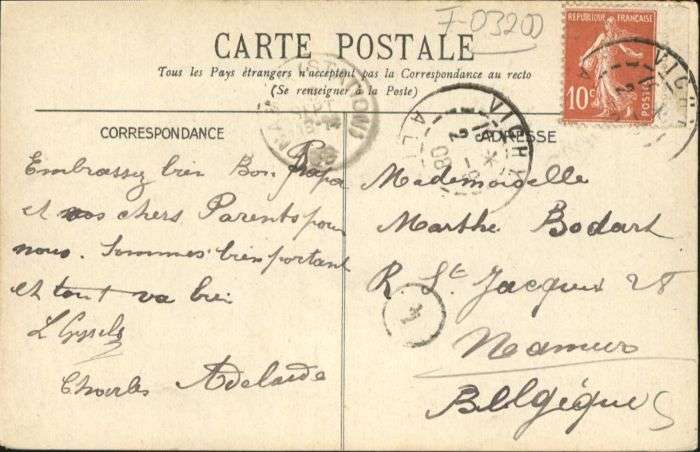 7-03200
CARTE POSTALE
Tous les Pays étrangers n'acceptent pas la Correspondance au recto
(Se renseigner à la Poste)
REPUBLIQUE FRANÇAISE
10c
POSTES
VICHY
VICHY
STATION
CORRESPONDANCE
Embrassez bien Bon Papa
et nos chers Parents pour
nous. Sommes bien portant
et tout va bien
Charles Adelaïde
ADRESSE
Mademoiselle
Marthe Bodart
R St Jacques 28
Namur
Belgique